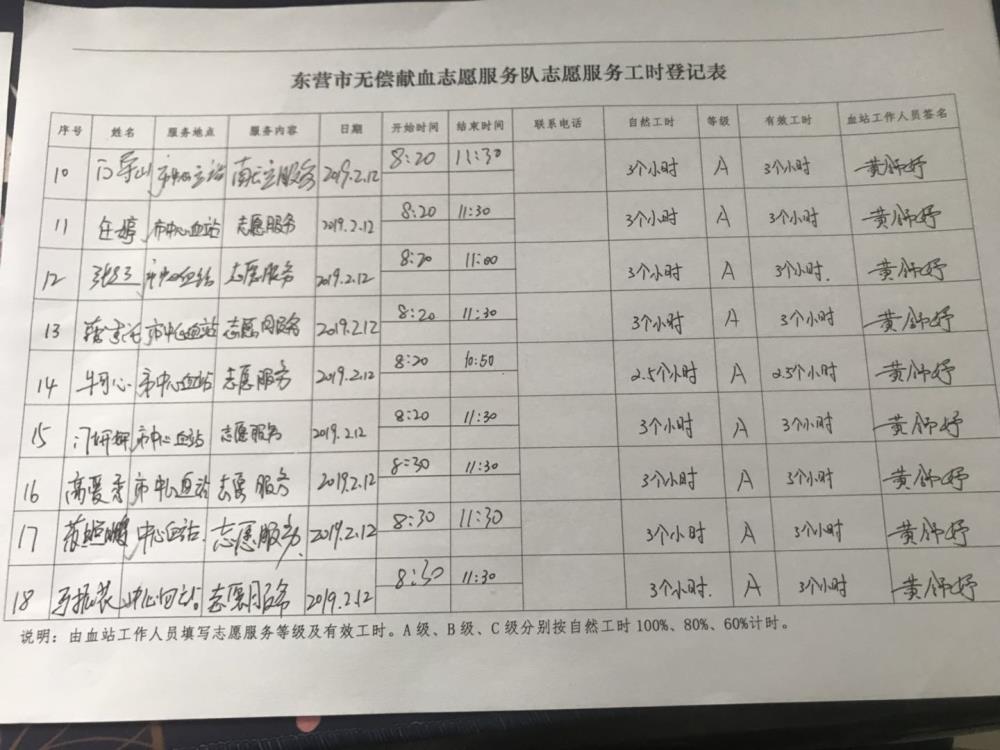 东营市无偿献血志愿服务队志愿服务工时登记表
序号 姓名 服务地点 服务内容 日期 开始时间 结束时间 联系电话 自然工时 等级 有效工时 血站工作人员签名
10 2019.2.12 8:20 11:30 3个小时 A 3个小时 黄师妤
11 任婷 市中心血站 志愿服务 2019.2.12 8:20 11:30 3个小时 A 3个小时 黄师妤
12 市中心血站 志愿服务 2019.2.12 8:20 11:00 3个小时 A 3个小时. 黄师妤
13 市中心血站 志愿服务 2019.2.12 8:20 11:30 3个小时 A 3个小时 黄师妤
14 牛可心 市中心血站 志愿服务 2019.2.12 8:20 10:50 2.5个小时 A 2.5个小时 黄师妤
15 市中心血站 志愿服务 2019.2.12 8:20 11:30 3个小时 A 3个小时 黄师妤
16 市中心血站 志愿服务 2019.2.12 8:30 11:30 3个小时 A 3个小时 黄师妤
17 中心血站. 志愿服务. 2019.2.12 8:30 11:30 3个小时 A 3个小时 黄师妤
18 志愿服务 2019.2.12 8:30 11:30 3个小时. A 3个小时 黄师妤
说明：由血站工作人员填写志愿服务等级及有效工时。A级、B级、C级分别按自然工时100%、80%、60%计时。